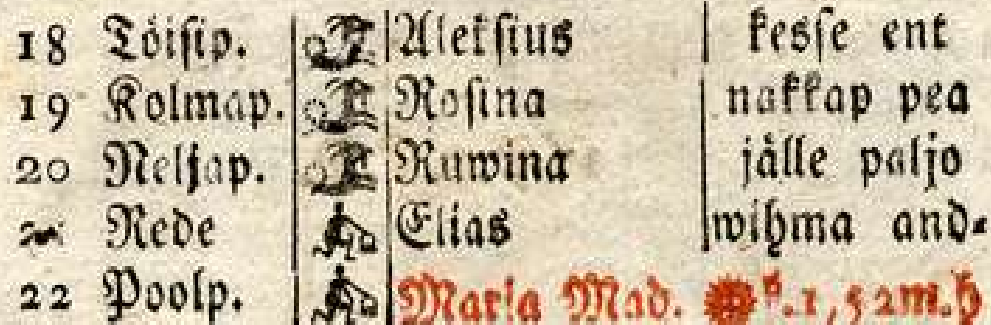 18 Töisip. Aleksius kesse ent
19 Kolmap. Rosina nakkap pea
20 Neljap. Ruwina jälle paljo
Rede Elias wihma and-
22 Poolp. Maria Mad. k. 1, 52m. h